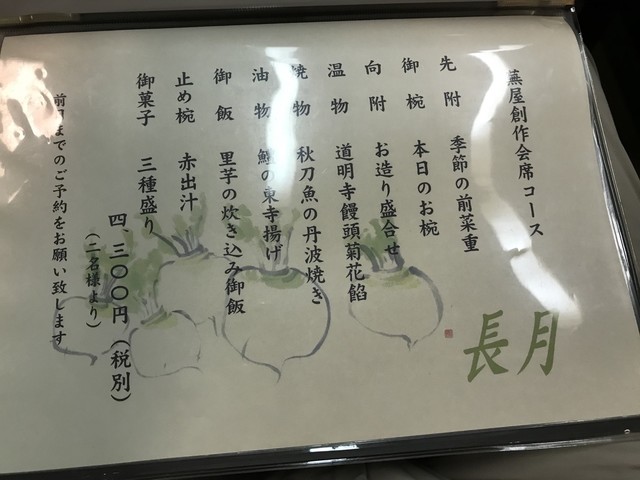 蕪屋創作会席コース
長月
先附 季節の前菜重
御椀 本日のお椀
向附 お造り盛合せ
温物 道明寺饅頭菊花餡
焼物 秋刀魚の丹波焼き
油物 鱧の東寺揚げ
御飯 里芋の炊き込み御飯
止め椀 赤出汁
御菓子 三種盛り
四、三〇〇円(税別)
(二名様より)
前日までのご予約をお願い致します